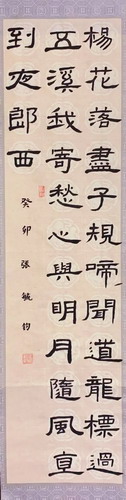 楊花落盡子規啼聞道龍標過
五溪我寄愁心與明月隨風直
到夜郎西
癸卯張毓鈞